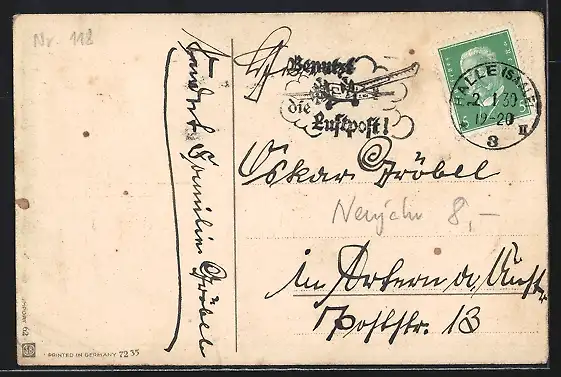 Nr. 118
sendet Familie Gröbel
Benutzt
die
Luftpost!
HALLE (SAALE)
2.1.30
19-20
8
II
Oskar Gröbel
Neujahr 8,-
in Artern a/Unstr.
Poststr. 13
PRINTED IN GERMANY 7235